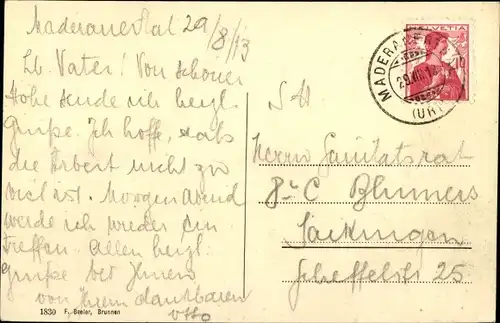 Maderanertal 29/8/13
Lb. Vater! Von schöner
Höhe sende ich herzl.
Grüße. Ich hoffe, dass
die Arbeit nicht zu
viel ist. Morgen Abend
werde ich wieder ein
treffen. Allen herzl.
Grüße bes Ihnen
von Ihrem dankbaren
Otto
1830 F. Beeler, Brunnen
HELVETIA
10
MADERANERTAL
29.VIII.13
(URI)
S. H.
Herrn Sanitätsrat
Dr C Blumers
Säckingen
Scheffelstr 25